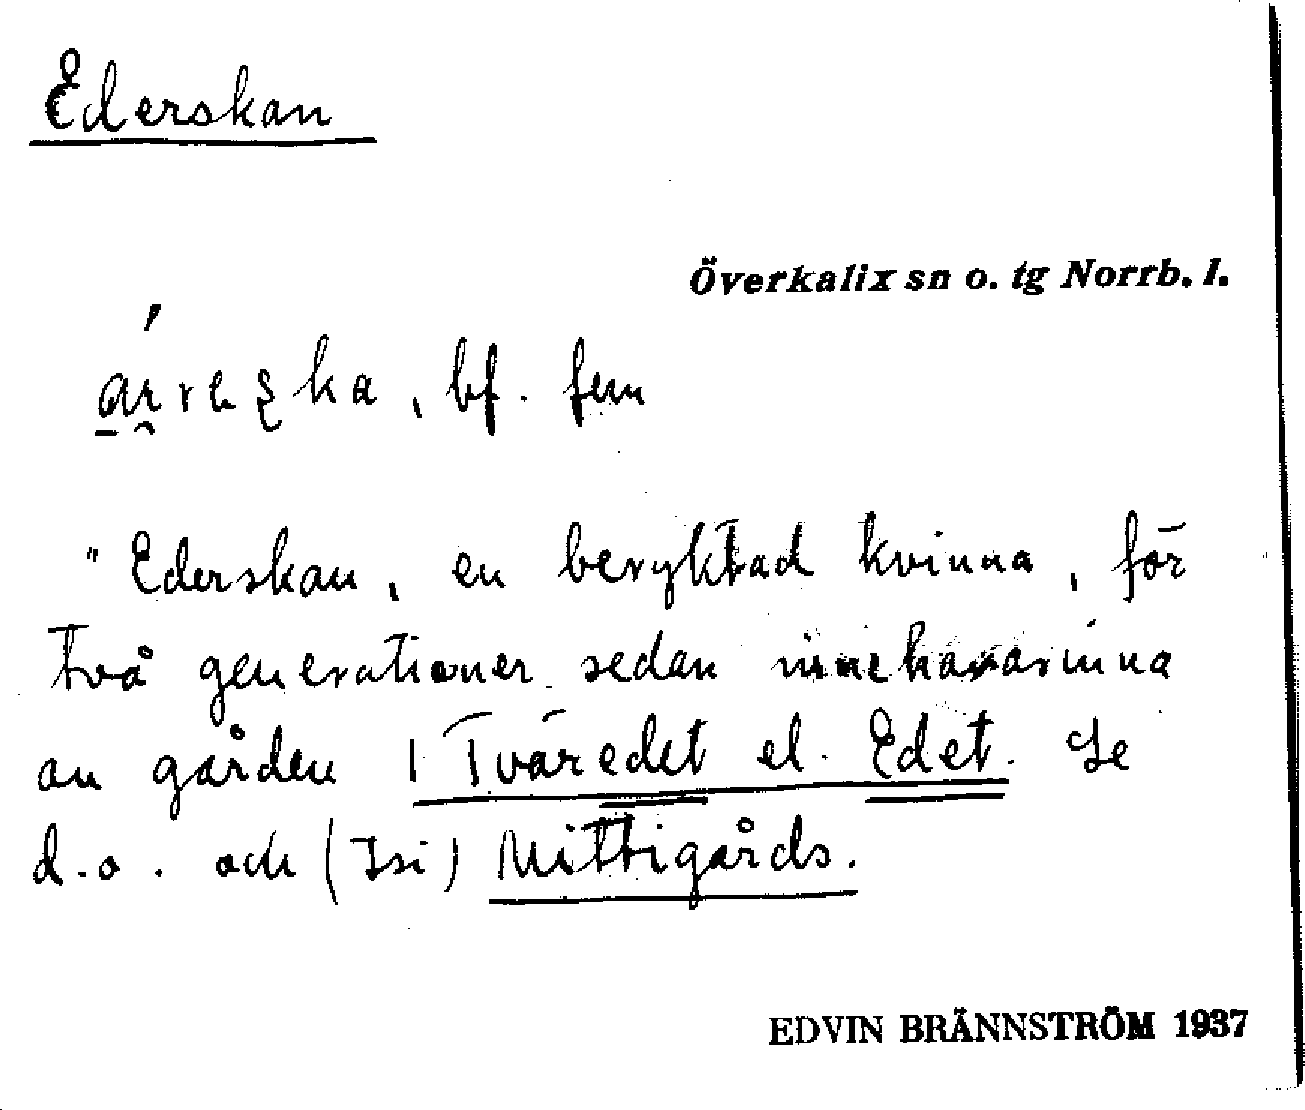 Ederskan
Överkalix sn o. tg Norrb. l.
bf. fem
"Ederskan, en beryktad kvinna, för
två generationer sedan innehavarinna
av gården i Tväredet el. Edet. Se
d.o. och (Isi) Mittigårds.
EDVIN BRÄNNSTRÖM 1937